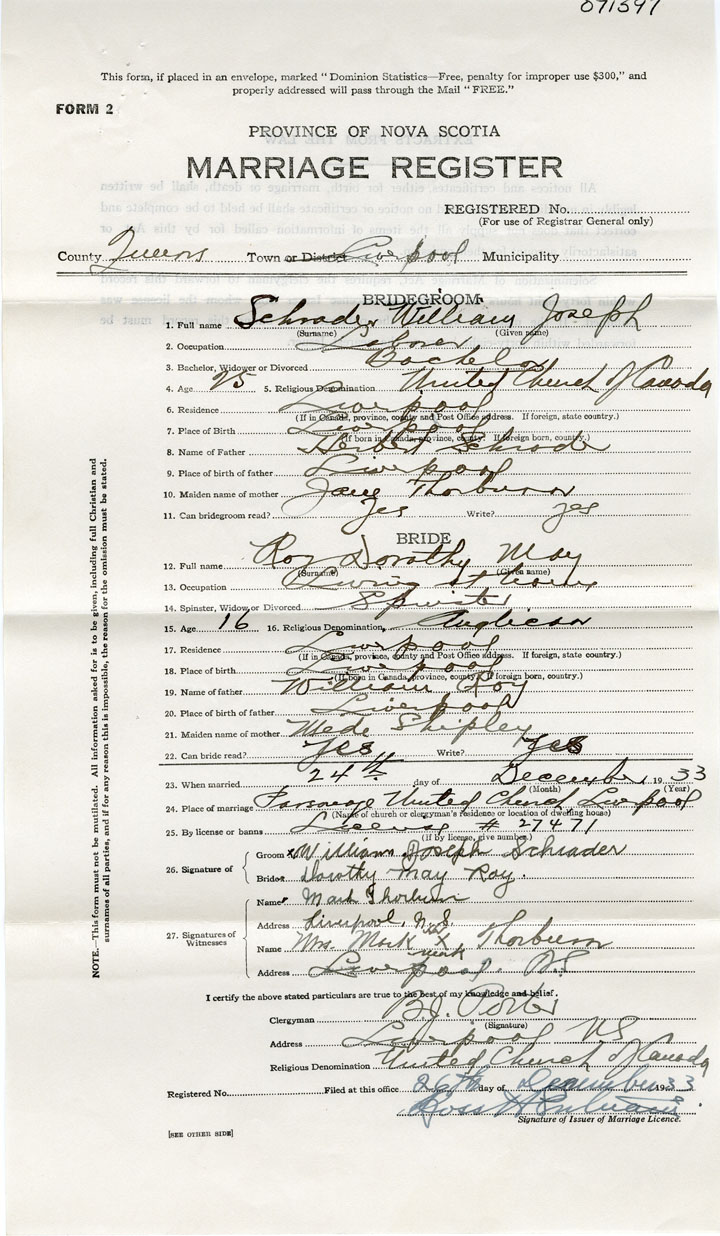 071397
This form, if placed in an envelope, marked "Dominion Statistics—Free, penalty for improper use $300," and
properly addressed will pass through the Mail "FREE."
FORM 2
PROVINCE OF NOVA SCOTIA
MARRIAGE REGISTER
REGISTERED No.
(For use of Registrar General only)
County Queens Town or District Liverpool Municipality
BRIDEGROOM
1. Full name Schrader William Joseph
(Surname) (Given name)
2. Occupation Laborer
3. Bachelor, Widower or Divorced Bachelor
4. Age 25 5. Religious Denomination United Church of Canada
6. Residence Liverpool
(If in Canada, province, county and Post Office address. If foreign, state country.)
7. Place of Birth Liverpool
(If born in Canada, province, county. If foreign born, country.)
8. Name of Father Herbert Schrader
9. Place of birth of father Liverpool
10. Maiden name of mother Jane Thorburn
11. Can bridegroom read? Yes Write? Yes
BRIDE
12. Full name Roy Dorothy May
(Surname) (Given name)
13. Occupation Living at home
14. Spinster, Widow or Divorced Spinster
15. Age 16 16. Religious Denomination Anglican
17. Residence Liverpool
(If in Canada, province, county and Post Office address. If foreign, state country.)
18. Place of birth Liverpool
(If born in Canada, province, county. If foreign born, country.)
19. Name of father William Roy
20. Place of birth of father Liverpool
21. Maiden name of mother Mede Shipley
22. Can bride read? Yes Write? Yes
23. When married 24th day of December, 1933
(Month) (Year)
24. Place of marriage Parsonage United Church Liverpool
(Name of church or clergyman's residence or location of dwelling house)
25. By license or banns License # 27471
(If by license, give number.)
26. Signature of
Groom x William Joseph Schrader
Bride Dorothy May Roy.
27. Signatures of Witnesses
Name Mark Thorburn
Address Liverpool, N.S.
Name Mrs. Mark her X mark Thorburn
Address Liverpool. N.S
I certify the above stated particulars are true to the best of my knowledge and belief.
Clergyman B.J. Porter
(Signature)
Address Liverpool NS
Religious Denomination United Church of Canada
Registered No. Filed at this office 26th day of December 1933
Signature of Issuer of Marriage Licence.
[SEE OTHER SIDE]
NOTE.—This form must not be mutilated. All information asked for is to be given, including full Christian and
surnames of all parties, and if for any reason this is impossible, the reason for the omission must be stated.